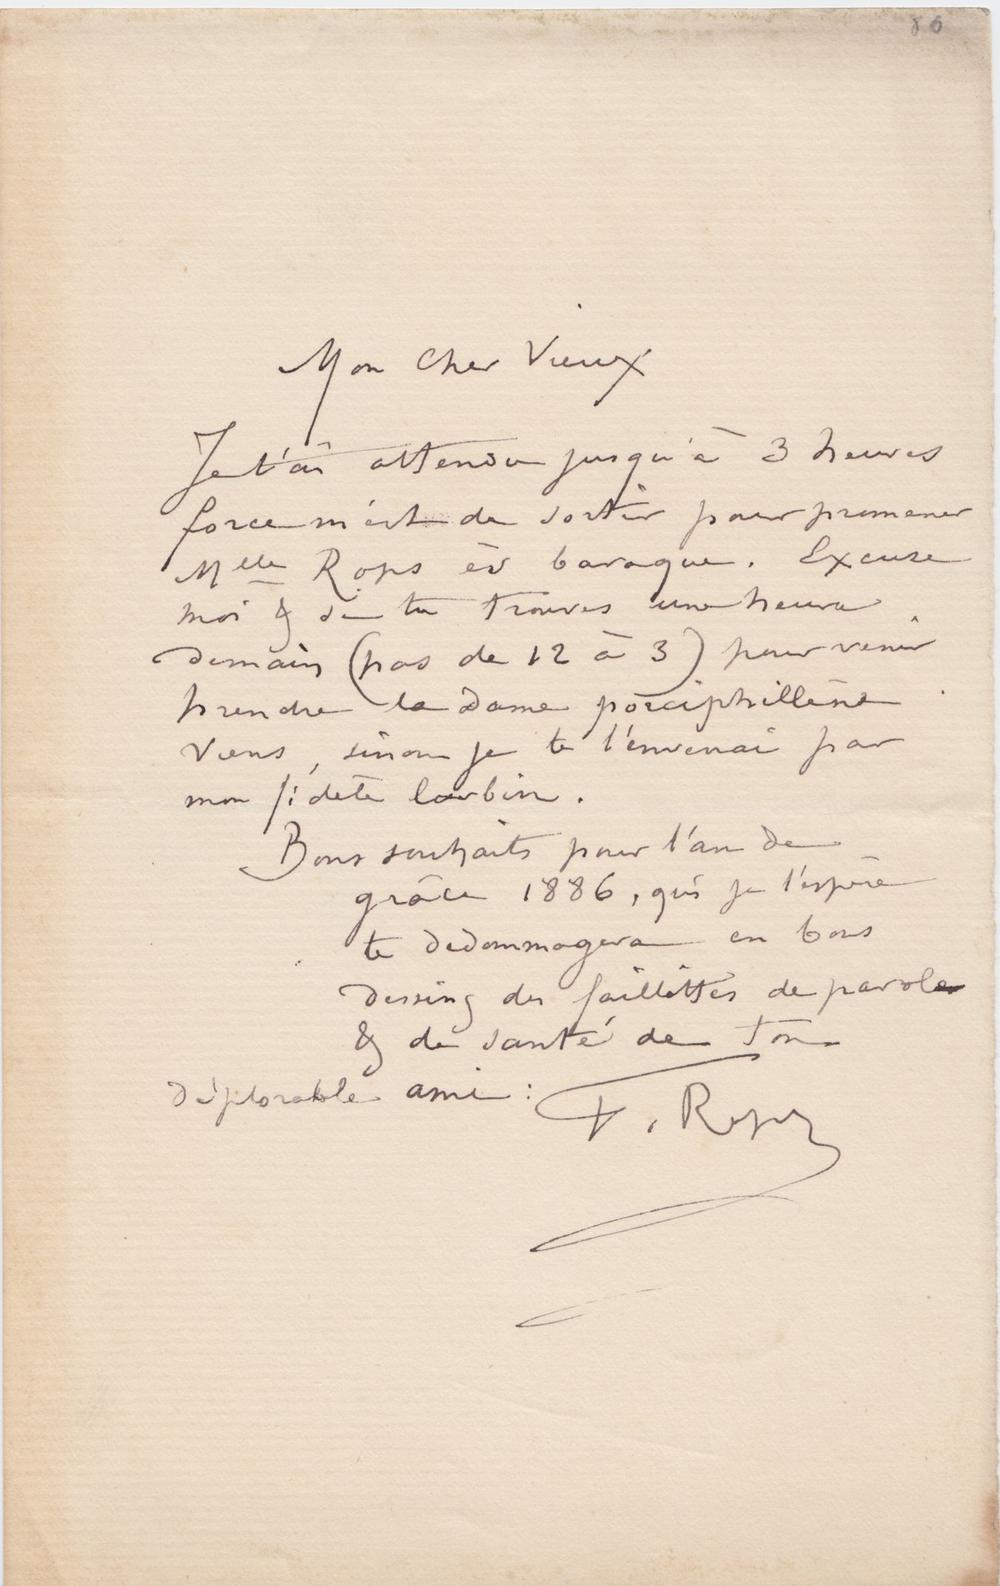 86
Mon Cher Vieux
Je t'ai attendu jusqu'à 3 heures
force m'est de sortir pour promener
Mlle Rops ès baraque. Excuse
moi & si tu trouves une heure
demain (pas de 12 à 3) pour venir
prendre la Dame porciphillène
viens, sinon je te l'enverrai par
mon fidèle larbin.
Bons souhaits pour l'an de
grâce 1886, qui je l'espère
te dédommagera en bons
dessins des faillittes de parole
& de santé de Ton
déplorable ami :
F. Rops